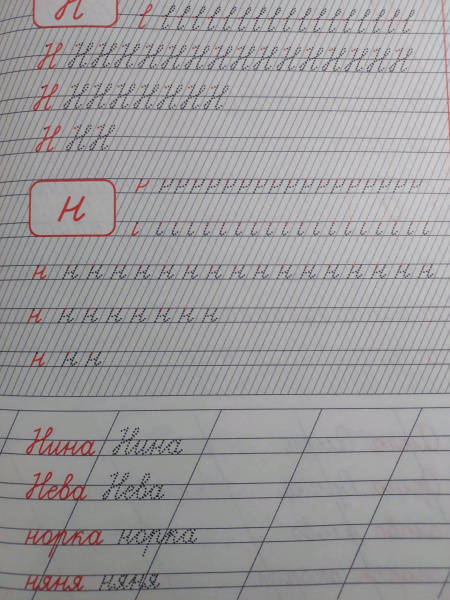 Н
Н Н Н Н Н Н Н Н Н Н Н Н Н Н Н Н
Н Н Н Н Н Н Н Н
Н Н Н
н
н н н н н н н н н н н н н н н н н
н н н н н н н н
н н н
Нина Нина
Нева Нева
норка норка
няня няня